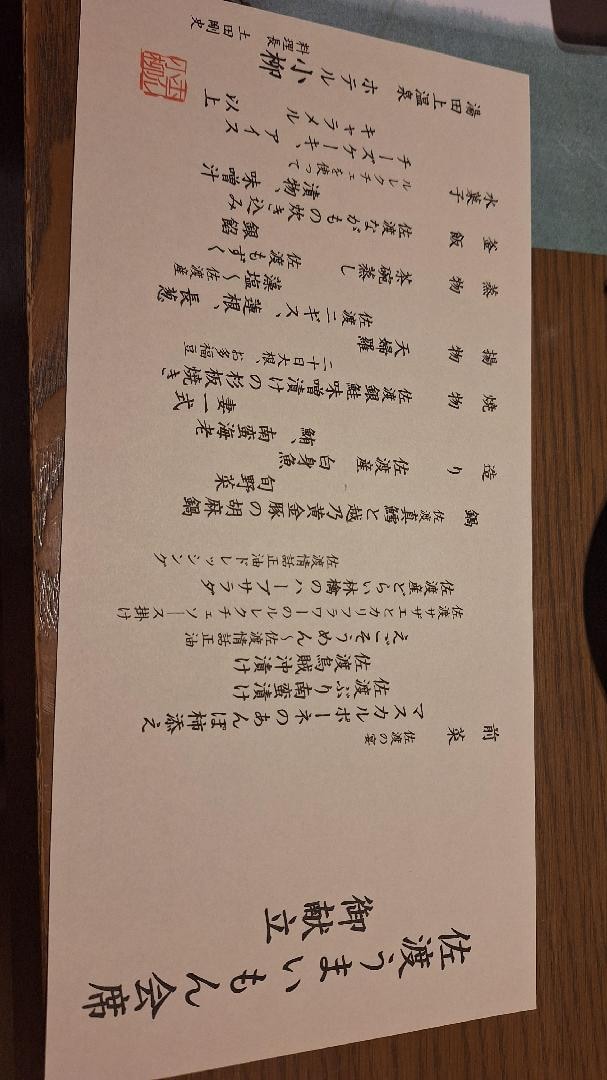 佐渡うまいもん会席
御献立
前菜
佐渡の宴
マスカルポーネのあんぽ柿添え
佐渡ぶり南蛮漬け
佐渡烏賊沖漬け
えごそうめん〜佐渡情話正油
佐渡サザエとカリフラワーのルレクチェソース掛け
佐渡産どらい林檎のハーブサラダ
佐渡情話正油ドレッシング
鍋 佐渡真鱈と越乃黄金豚の胡麻鍋
旬野菜
造り 佐渡産 白身魚
鮪、南蛮海老
妻一式
焼物 佐渡銀鮭味噌漬けの杉板焼き
二十日大根、お多福豆
揚物 天婦羅
佐渡ニギス、蓮根、長葱
藻塩〜佐渡産
蒸物 茶碗蒸し
佐渡もずく 銀餡
釜飯 佐渡ながもの炊き込み
漬物、味噌汁
水菓子 ルレクチェを使って
チーズケーキ、アイス
キャラメル
以上
湯田上温泉 ホテル小柳
料理長 土田剛史